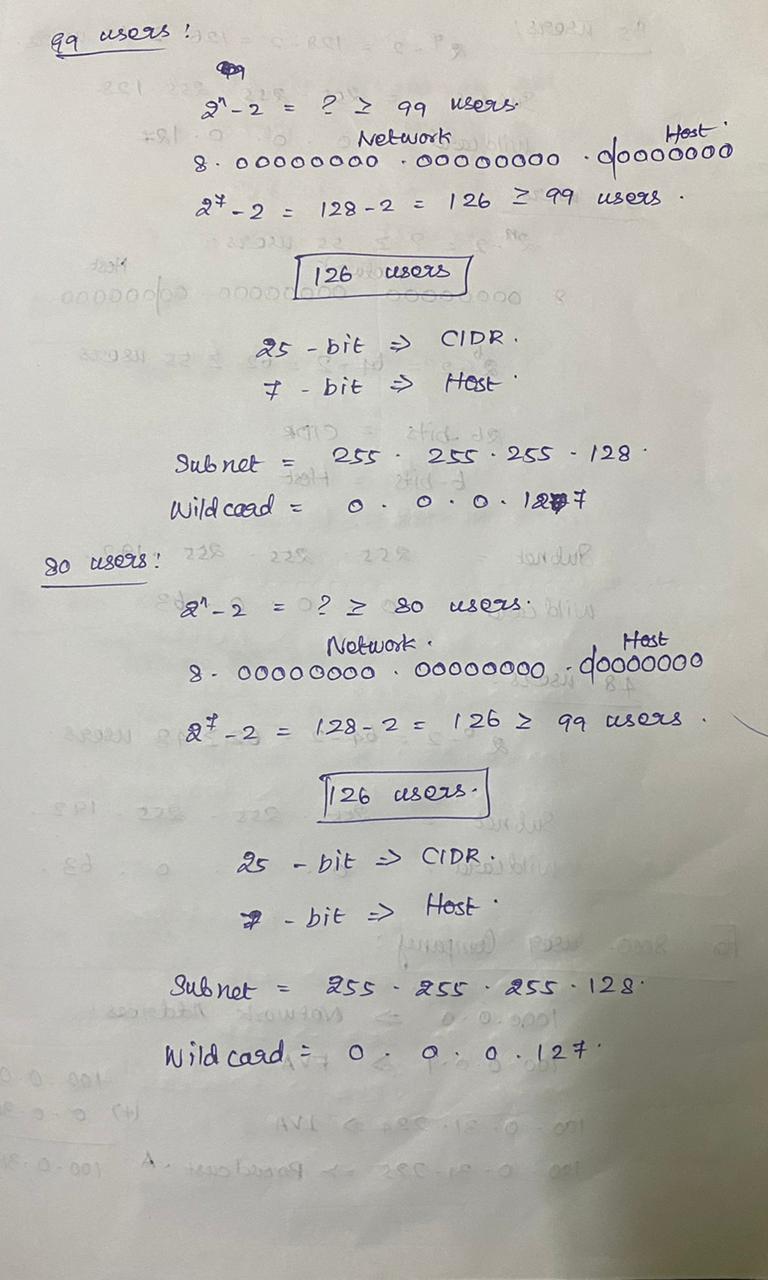 99 users!
2ⁿ-2 = ? ≥ 99 users.
Network Host
8. 00000000 . 00000000 . 00000000
2⁷-2 = 128-2 = 126 ≥ 99 users.
126 users
25 - bit ⇒ CIDR.
7 - bit ⇒ Host.
Subnet = 255. 255. 255. 128.
Wild card = 0. 0. 0. 127
80 users!
2ⁿ-2 = ? ≥ 80 users.
Network. Host
8. 00000000 . 00000000 . 00000000
2⁷-2 = 128-2 = 126 ≥ 99 users.
126 users.
25 - bit ⇒ CIDR.
7 - bit ⇒ Host.
Subnet = 255. 255. 255. 128.
Wild card = 0. 0. 0. 127.